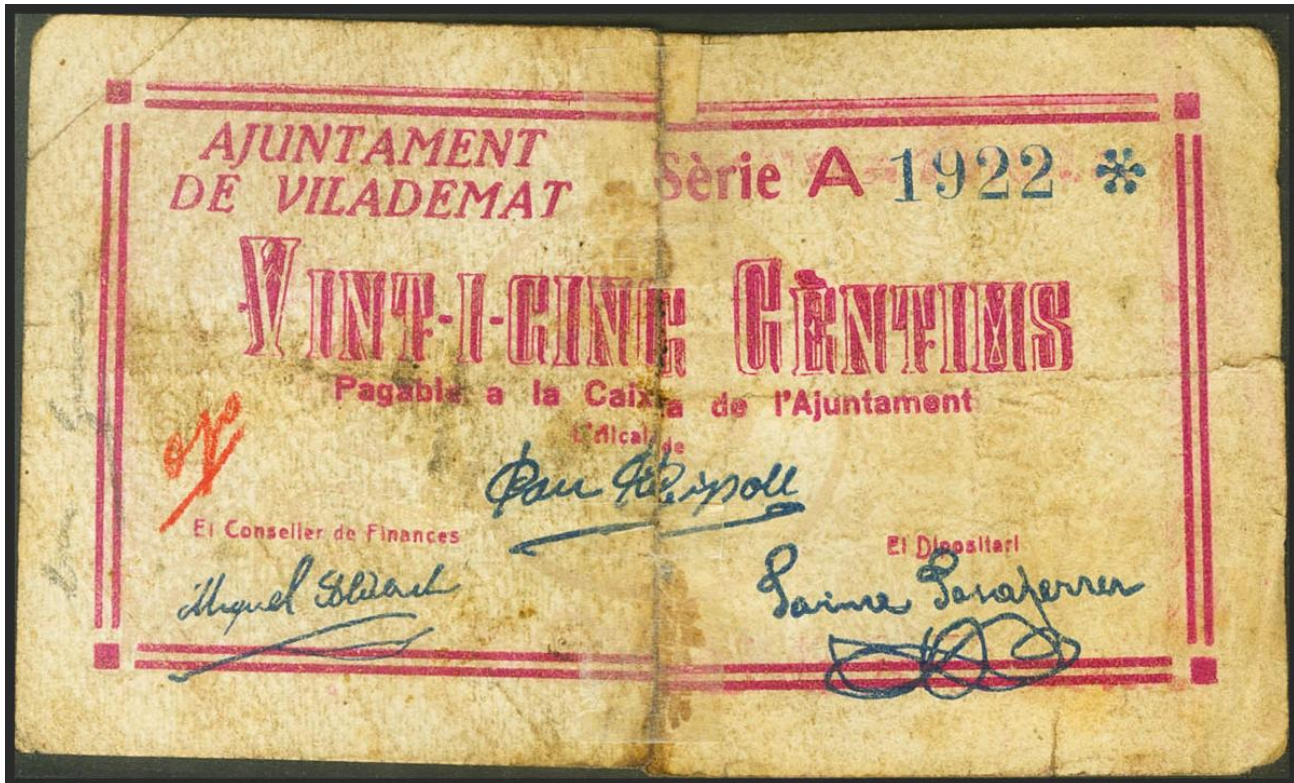 AJUNTAMENT
DE VILADEMAT
Sèrie A 1922 *
VINT-I-CINC CÈNTIMS
Pagable a la Caixa de l'Ajuntament
L'Alcalde
Pau Ripoll
El Conseller de Finances
El Dipositari
Miquel
Jaime